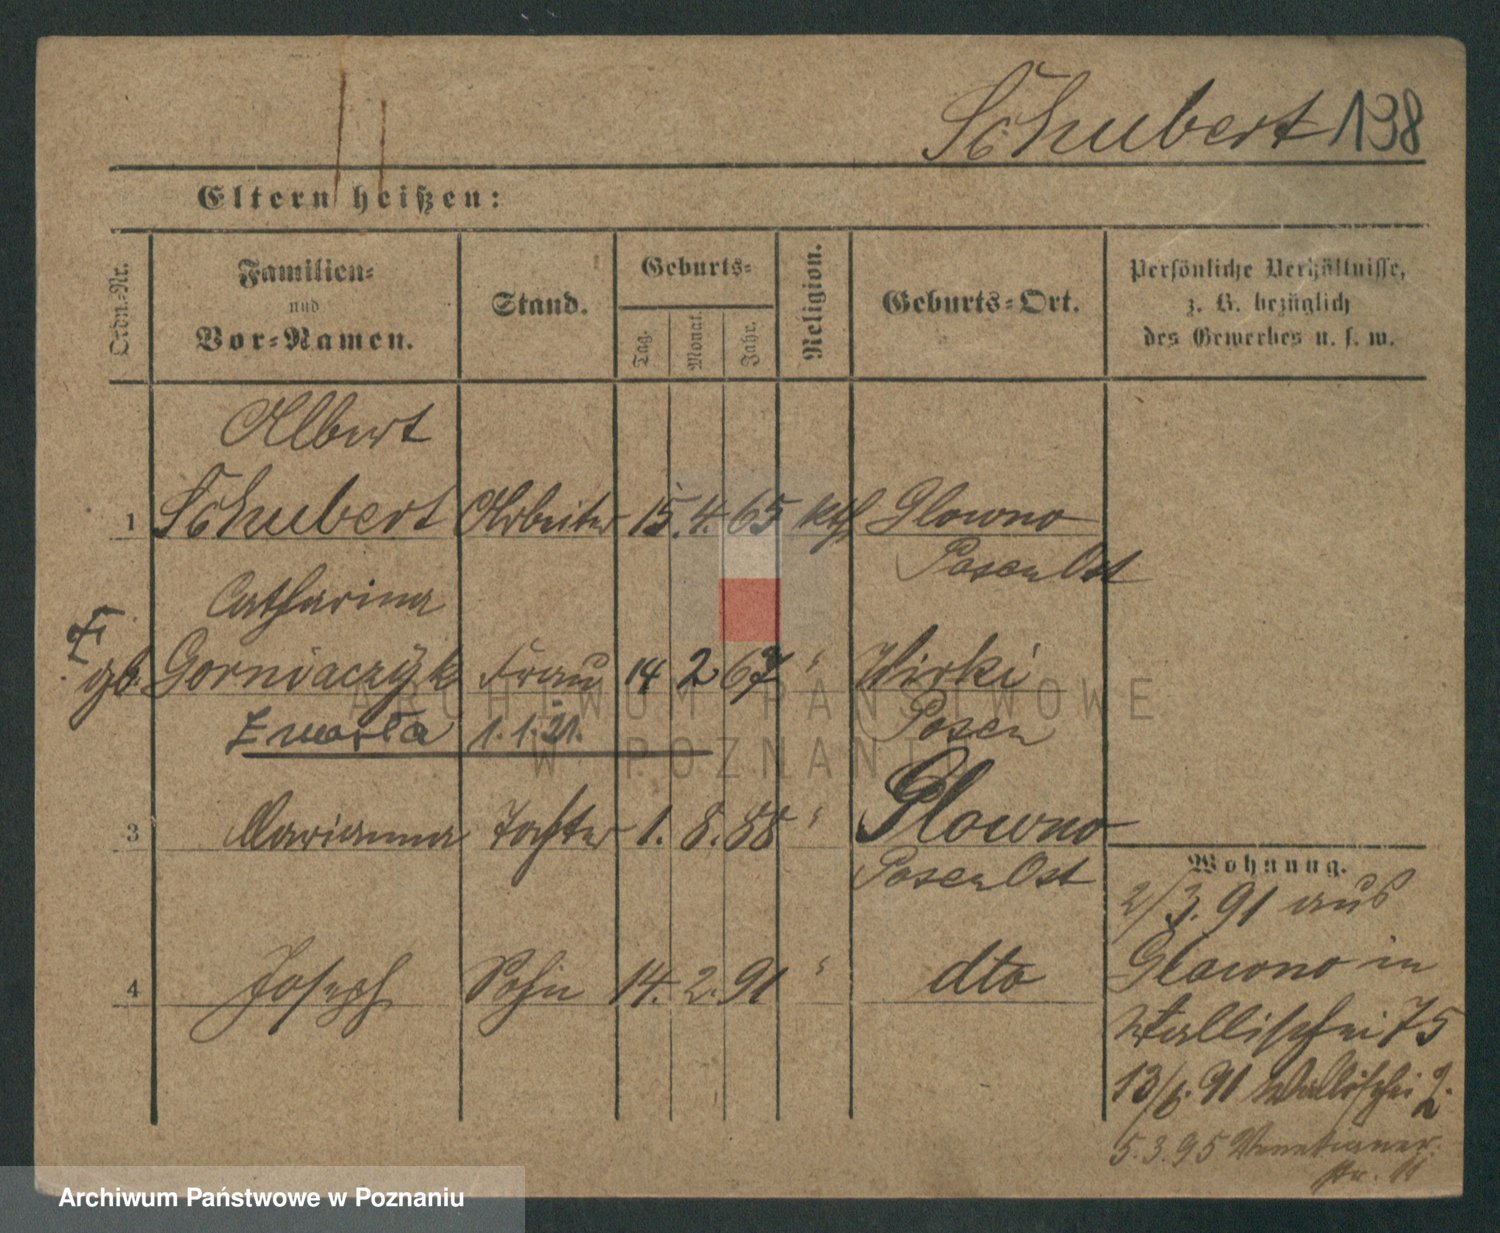 Schubert 138
Eltern heißen:
Ordn.-Nr.
Familien-
und
Vor-Namen.
Stand.
Geburts-
Tag.
Monat.
Jahr.
Religion.
Geburts-Ort.
Persönliche Verhältnisse,
z. B. bezüglich
des Gewerbes u. s. w.
Albert
1 Schubert Arbeiter 15. 4. 65 kth Glowno
Posen Ost
Catharina
gb. Gorniaczyk Frau 14 2 67 " Wirki
Zmarła 1.1.21. Posen
3 Marianna Tochter 1. 8. 88 " Glowno
Posen Ost
Wohnung.
2/3. 91 aus
4 Joseph Sohn 14. 2. 91 " dto
Glowno in
Wallischei 75
13/6. 91 Wallischei 2.
5.3.95 Venetianer
str. 11
ARCHIWUM PAŃSTWOWE
W POZNANIU
Archiwum Państwowe w Poznaniu